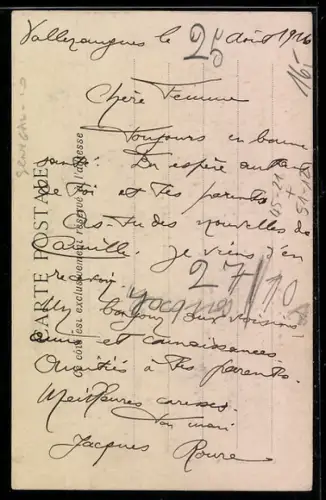 Valleraugues le 25 août 1916
Chère Femme
Toujours en bonne
santé. J'en espère autant
de toi et tes parents
As-tu des nouvelles de
Camille. Je viens d'en
recevoir.
Un bonjour aux voisins
amis et connaissances
Amitiés à tes parents.
Meilleures caresses.
Ton mari
Jacques Roure
CARTE POSTALE
Ce côté est exclusivement réservé à l'adresse
16-
27/10
Jacques